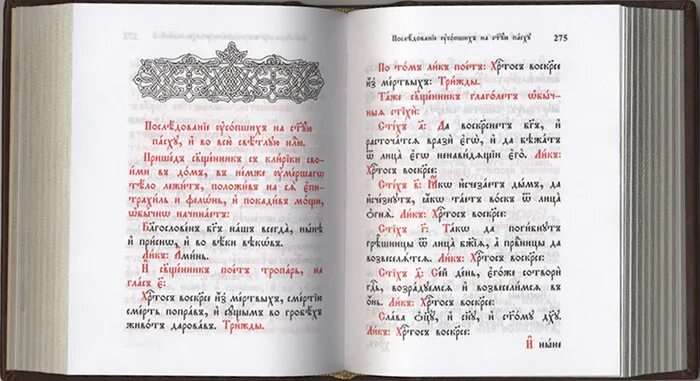 Послѣ́дованїе оу҆со́пшихъ на ст҃у́ю
па́сху, и҆ во всю̀ свѣ́тлую н҃лю.
Прише́дъ сщ҃е́нникъ съ кли́рики свои́-
ми въ до́мъ, въ не́мже оу҆ме́ршагѡ
тѣ́ло лежи́тъ, положи́въ на сѧ̀ є҆пи-
трахи́ль и҆ фело́нь, и҆ покади́въ мо́щи,
ѡ҆бы́чнѡ начина́етъ:
Благослове́нъ бг҃ъ на́шъ всегда̀, ны́нѣ
и҆ при́снѡ, и҆ во вѣ́ки вѣкѡ́въ.
Ли́къ: А҆ми́нь.
И҆ сщ҃е́нникъ пое́тъ тропа́рь, на
гла́съ є҃:
Хрⷭ҇то́съ воскре́се и҆з̾ ме́ртвыхъ, сме́ртїю
сме́рть попра́въ, и҆ су́щымъ во гробѣ́хъ
живо́тъ дарова́въ. Три́жды.
Послѣ́дованїе оу҆со́пшихъ на ст҃у́ю па́сху 275
По то́мъ ли́къ пое́тъ: Хрⷭ҇то́съ воскре́се
и҆з̾ ме́ртвыхъ: Три́жды.
Та́же сщ҃е́нникъ глаго́летъ ѡ҆бы́ч-
ныѧ стїхѝ:
Сті́хъ а҃: Да воскре́снетъ бг҃ъ, и҆
расточа́тсѧ вразѝ є҆гѡ̀, и҆ да бѣжа́тъ
ѿ лица̀ є҆гѡ̀ ненави́дѧщїи є҆го̀. Ли́къ:
Хрⷭ҇то́съ воскре́се:
Сті́хъ в҃: Ꙗ҆́кѡ и҆счеза́етъ ды́мъ, да
и҆сче́знутъ, ꙗ҆́кѡ та́етъ во́скъ ѿ лица̀
ѻ҆гнѧ̀. Ли́къ: Хрⷭ҇то́съ воскре́се:
Сті́хъ г҃: Та́кѡ да поги́бнутъ
грѣ̑шницы ѿ лица̀ бж҃їѧ, а҆ првⷣницы да
возвеселѧ́тсѧ. Ли́къ: Хрⷭ҇то́съ воскре́се:
Сті́хъ д҃: Се́й де́нь, є҆го́же сотворѝ
гдⷭ҇ь, возра́дуемсѧ и҆ возвесели́мсѧ въ
ѻ҆́нь. Ли́къ: Хрⷭ҇то́съ воскре́се:
Сла́ва ѻ҆ц҃ꙋ̀, и҆ сн҃ꙋ, и҆ ст҃о́мꙋ дх҃ꙋ.
Ли́къ: Хрⷭ҇то́съ воскре́се:
И҆ ны́нѣ